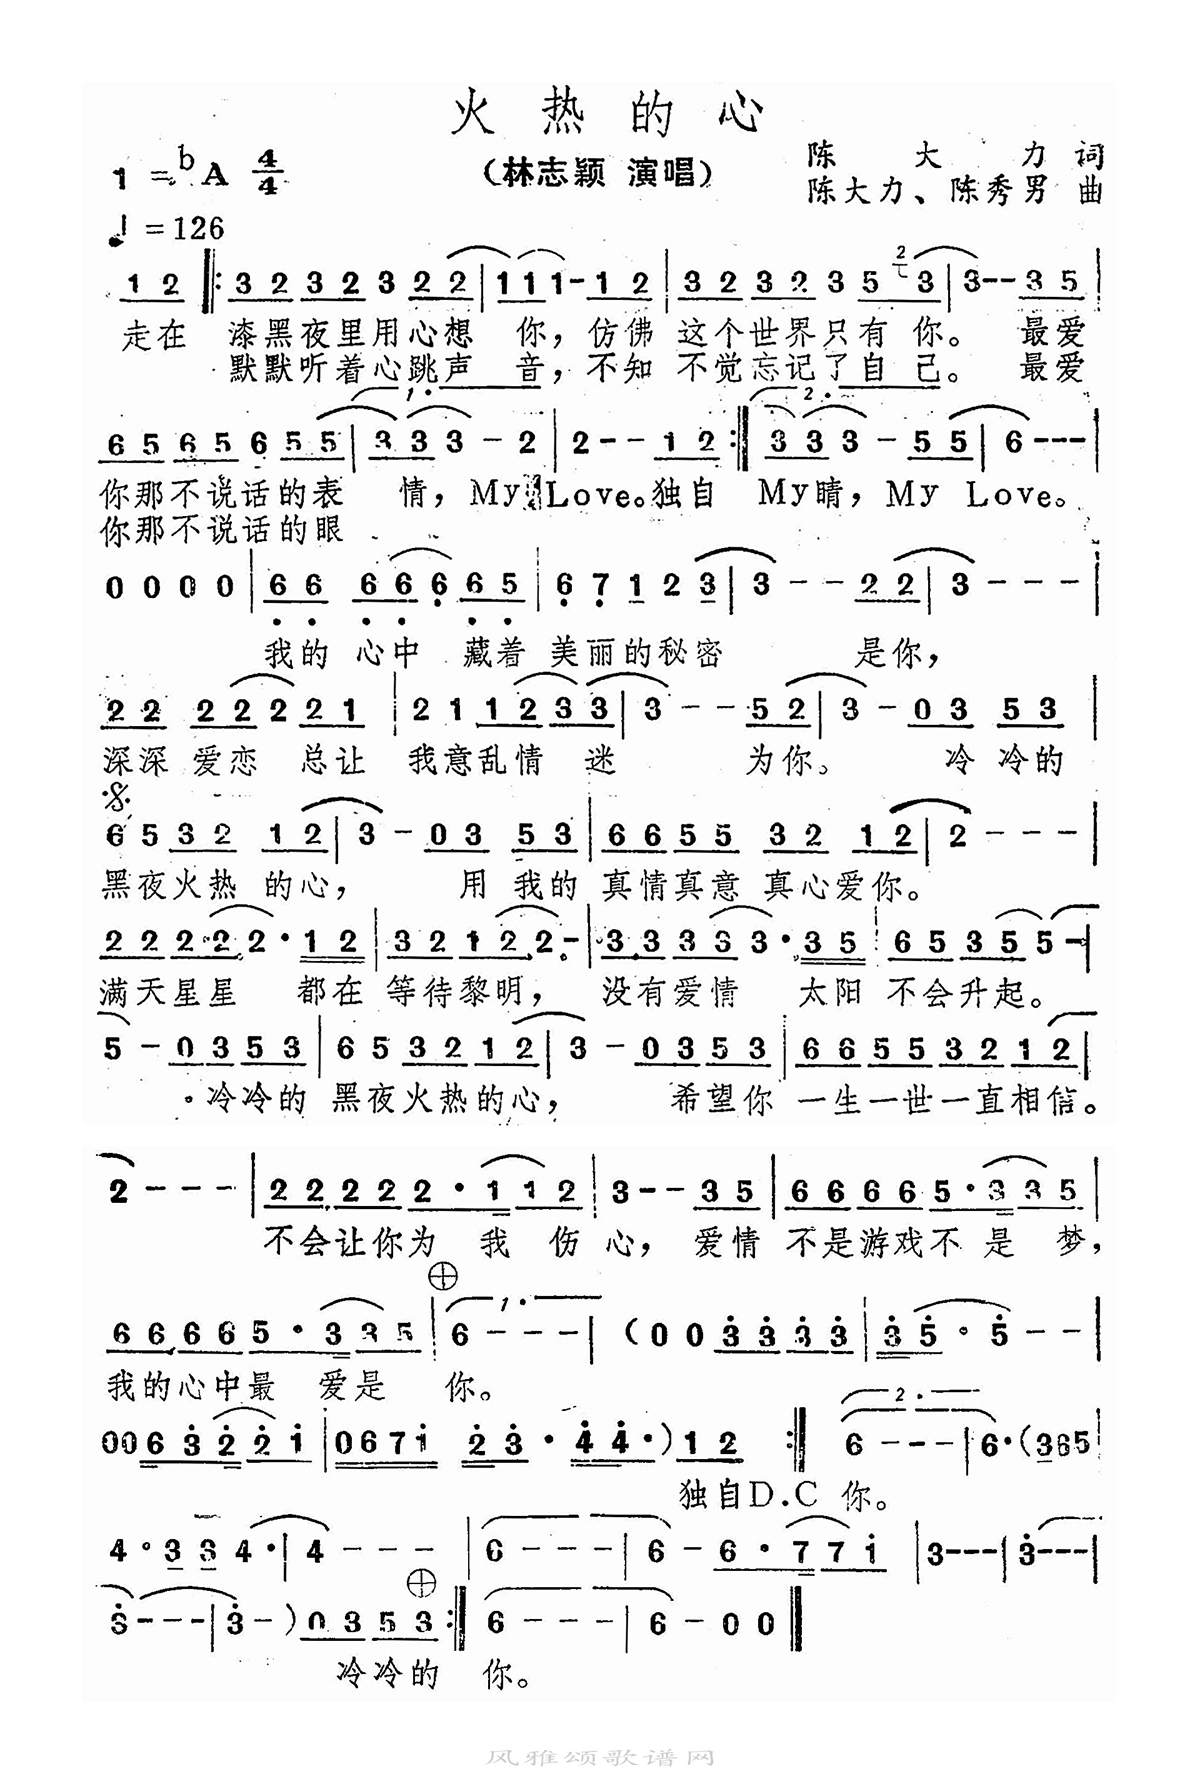 火热的心
1=♭A 4/4
(林志颖 演唱)
陈大力词
陈大力、陈秀男 曲
♩=126
1 2 ‖: 3 2 3 2 3 2 2 | 1 1 1 - 1 2 | 3 2 3 2 3 5 3 | 3 - - 3 5 |
走在 漆黑夜里用心想 你，仿佛 这个世界只有 你。 最爱
默默听着心跳声 音，不知 不觉忘记了自己。 最爱
1. 2.
6 5 6 5 6 5 5 | 3 3 3 - 2 | 2 - - 1 2 :‖ 3 3 3 - 5 5 | 6 - - - |
你那不说话的表 情，My Love。独自 My睛，My Love。
你那不说话的眼
0 0 0 0 | 6 6 6 6 6 6 5 | 6 7 1 2 3 | 3 - - 2 2 | 3 - - - |
我的 心中 藏着 美丽的秘密 是你，
2 2 2 2 2 2 1 | 2 1 1 2 3 3 | 3 - - 5 2 | 3 - 0 3 5 3 |
深深 爱恋 总让 我意乱情 迷 为你。 冷 冷的
6 5 3 2 1 2 | 3 - 0 3 5 3 | 6 6 5 5 3 2 1 2 | 2 - - - |
黑夜火热 的心， 用 我的 真情真意 真心爱你。
2 2 2 2 2 · 1 2 | 3 2 1 2 2 - | 3 3 3 3 3 · 3 5 | 6 5 3 5 5 - |
满天星星 都在 等待黎明， 没有爱情 太阳 不会升起。
5 - 0 3 5 3 | 6 5 3 2 1 2 | 3 - 0 3 5 3 | 6 6 5 5 3 2 1 2 |
冷冷的 黑夜火热的心， 希望你 一生一世一直相信。
2 - - - | 2 2 2 2 2 · 1 1 2 | 3 - - 3 5 | 6 6 6 6 5 · 3 3 5 |
不会让你为 我 伤 心，爱情 不是游戏不 是 梦，
1.
6 6 6 6 5 · 3 3 5 | 6 - - - | (0 0 3 3 3 3 | 3 5 · 5 - - |
我的心中最 爱是 你。
2.
0 0 6 3 2 2 1 | 0 6 7 1 2 3 · 4 4 · ) 1 2 :‖ 6 - - - | 6 · (3 6 5
独自D.C 你。
4 · 3 3 4 · | 4 - - - | 6 - - - | 6 - 6 · 7 7 1 | 3 - - - | 3 - - - |
3 - - - | 3 - ) 0 3 5 3 :‖ 6 - - - | 6 - 0 0 ‖
冷冷的 你。
风雅颂歌谱网